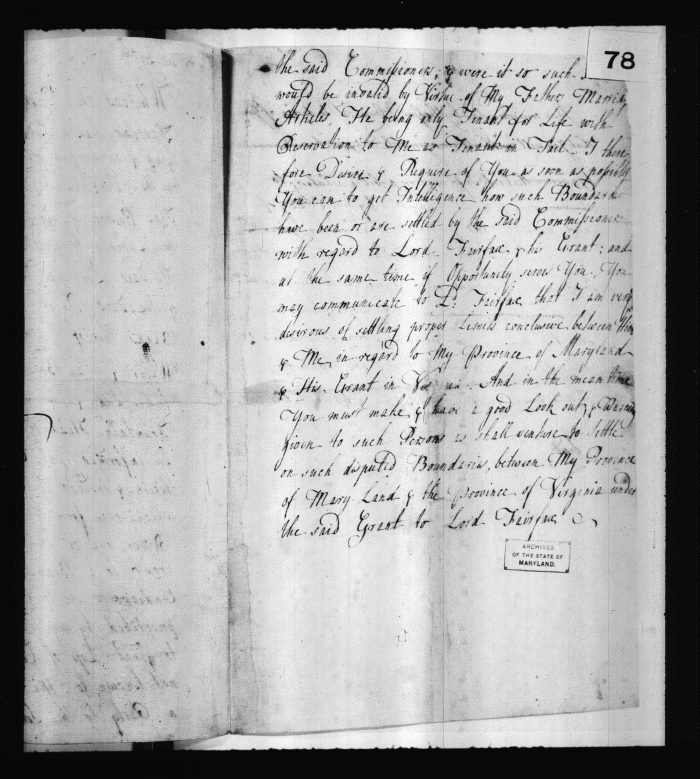 78
the said Commissioners, & were it so such
would be invalid by Virtue of My Father's Marri
Articles, He being only Tenant for Life with
Reservation to Me as Tenant in Tail. I there
fore Desire & Require of You as soon as possibly
You can to get Intelligence how such Boundarys
have been or are settled by the said Commissioners
with regard to Lord Fairfax & his Grant; and
at the same time if Opportunity serves You, You
may communicate to Ld: Fairfax that I am very
desirous of settling proper Limits conclusive between Him
& Me, in regard to My Province of Maryland
& His Grant in And in the mean time
You must make, & have a good Look out, & Warning
given to such Persons as shall venture to Settle
on such disputed Boundaries, between My Province
of Mary Land & the Province of Virginia under
the said Grant to Lord Fairfax
ARCHIVES
OF THE STATE OF
MARYLAND.